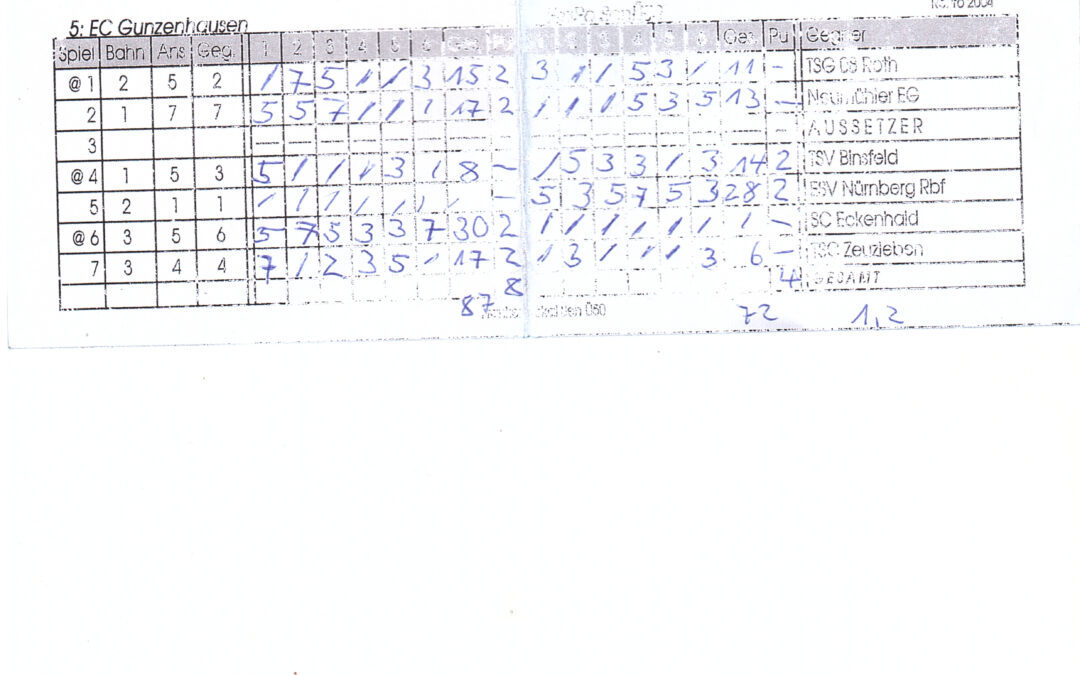 5: EC Gunzenhausen Nr. 10 2004
Spiel Bahn Ans Geg. 1 2 3 4 5 6 4 5 6 Ges Pu Gegner
@ 1 2 5 2 / 7 5 / / 3 15 2 3 / / 5 3 / 11 - TSG 08 Roth
2 1 7 7 5 5 7 / / / 17 2 / / / 5 3 5 13 - Neumühler EG
3 — — — — — — — — — — — — — — — - AUSSETZER
@ 4 1 5 3 5 / / / 3 / 8 - / 5 3 3 / 3 14 2 TSV Binsfeld
5 2 1 1 / / / / / / - 5 3 5 7 5 3 28 2 ESV Nürnberg Rbf
@ 6 3 5 6 5 7 5 3 3 7 30 2 / / / / / / / - SC Eckenhaid
7 3 4 4 7 / 2 3 5 / 17 2 / 3 / / / 3 6 - TSC Zeuzleben
8 4 GESAMT
87 Ü50 72 1,2